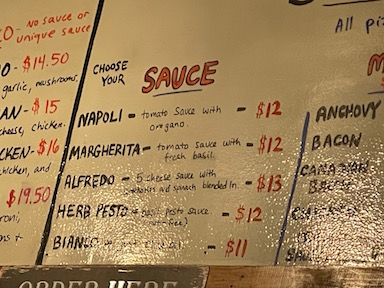 NO SAUCE or
unique sauce
$14.50
garlic, mushrooms.
$15
cheese, chicken.
$16
chicken, and
$19.50
CHOOSE
YOUR
SAUCE
NAPOLI - tomato sauce with
oregano. - $12
MARGHERITA - tomato sauce with
fresh basil. - $12
ALFREDO - 5 cheese sauce with
and spinach blended in. - $13
HERB PESTO - basil pesto sauce - $12
BIANCO - $11
All
ANCHOVY
BACON
CANADIAN
BACON
ORDER HERE